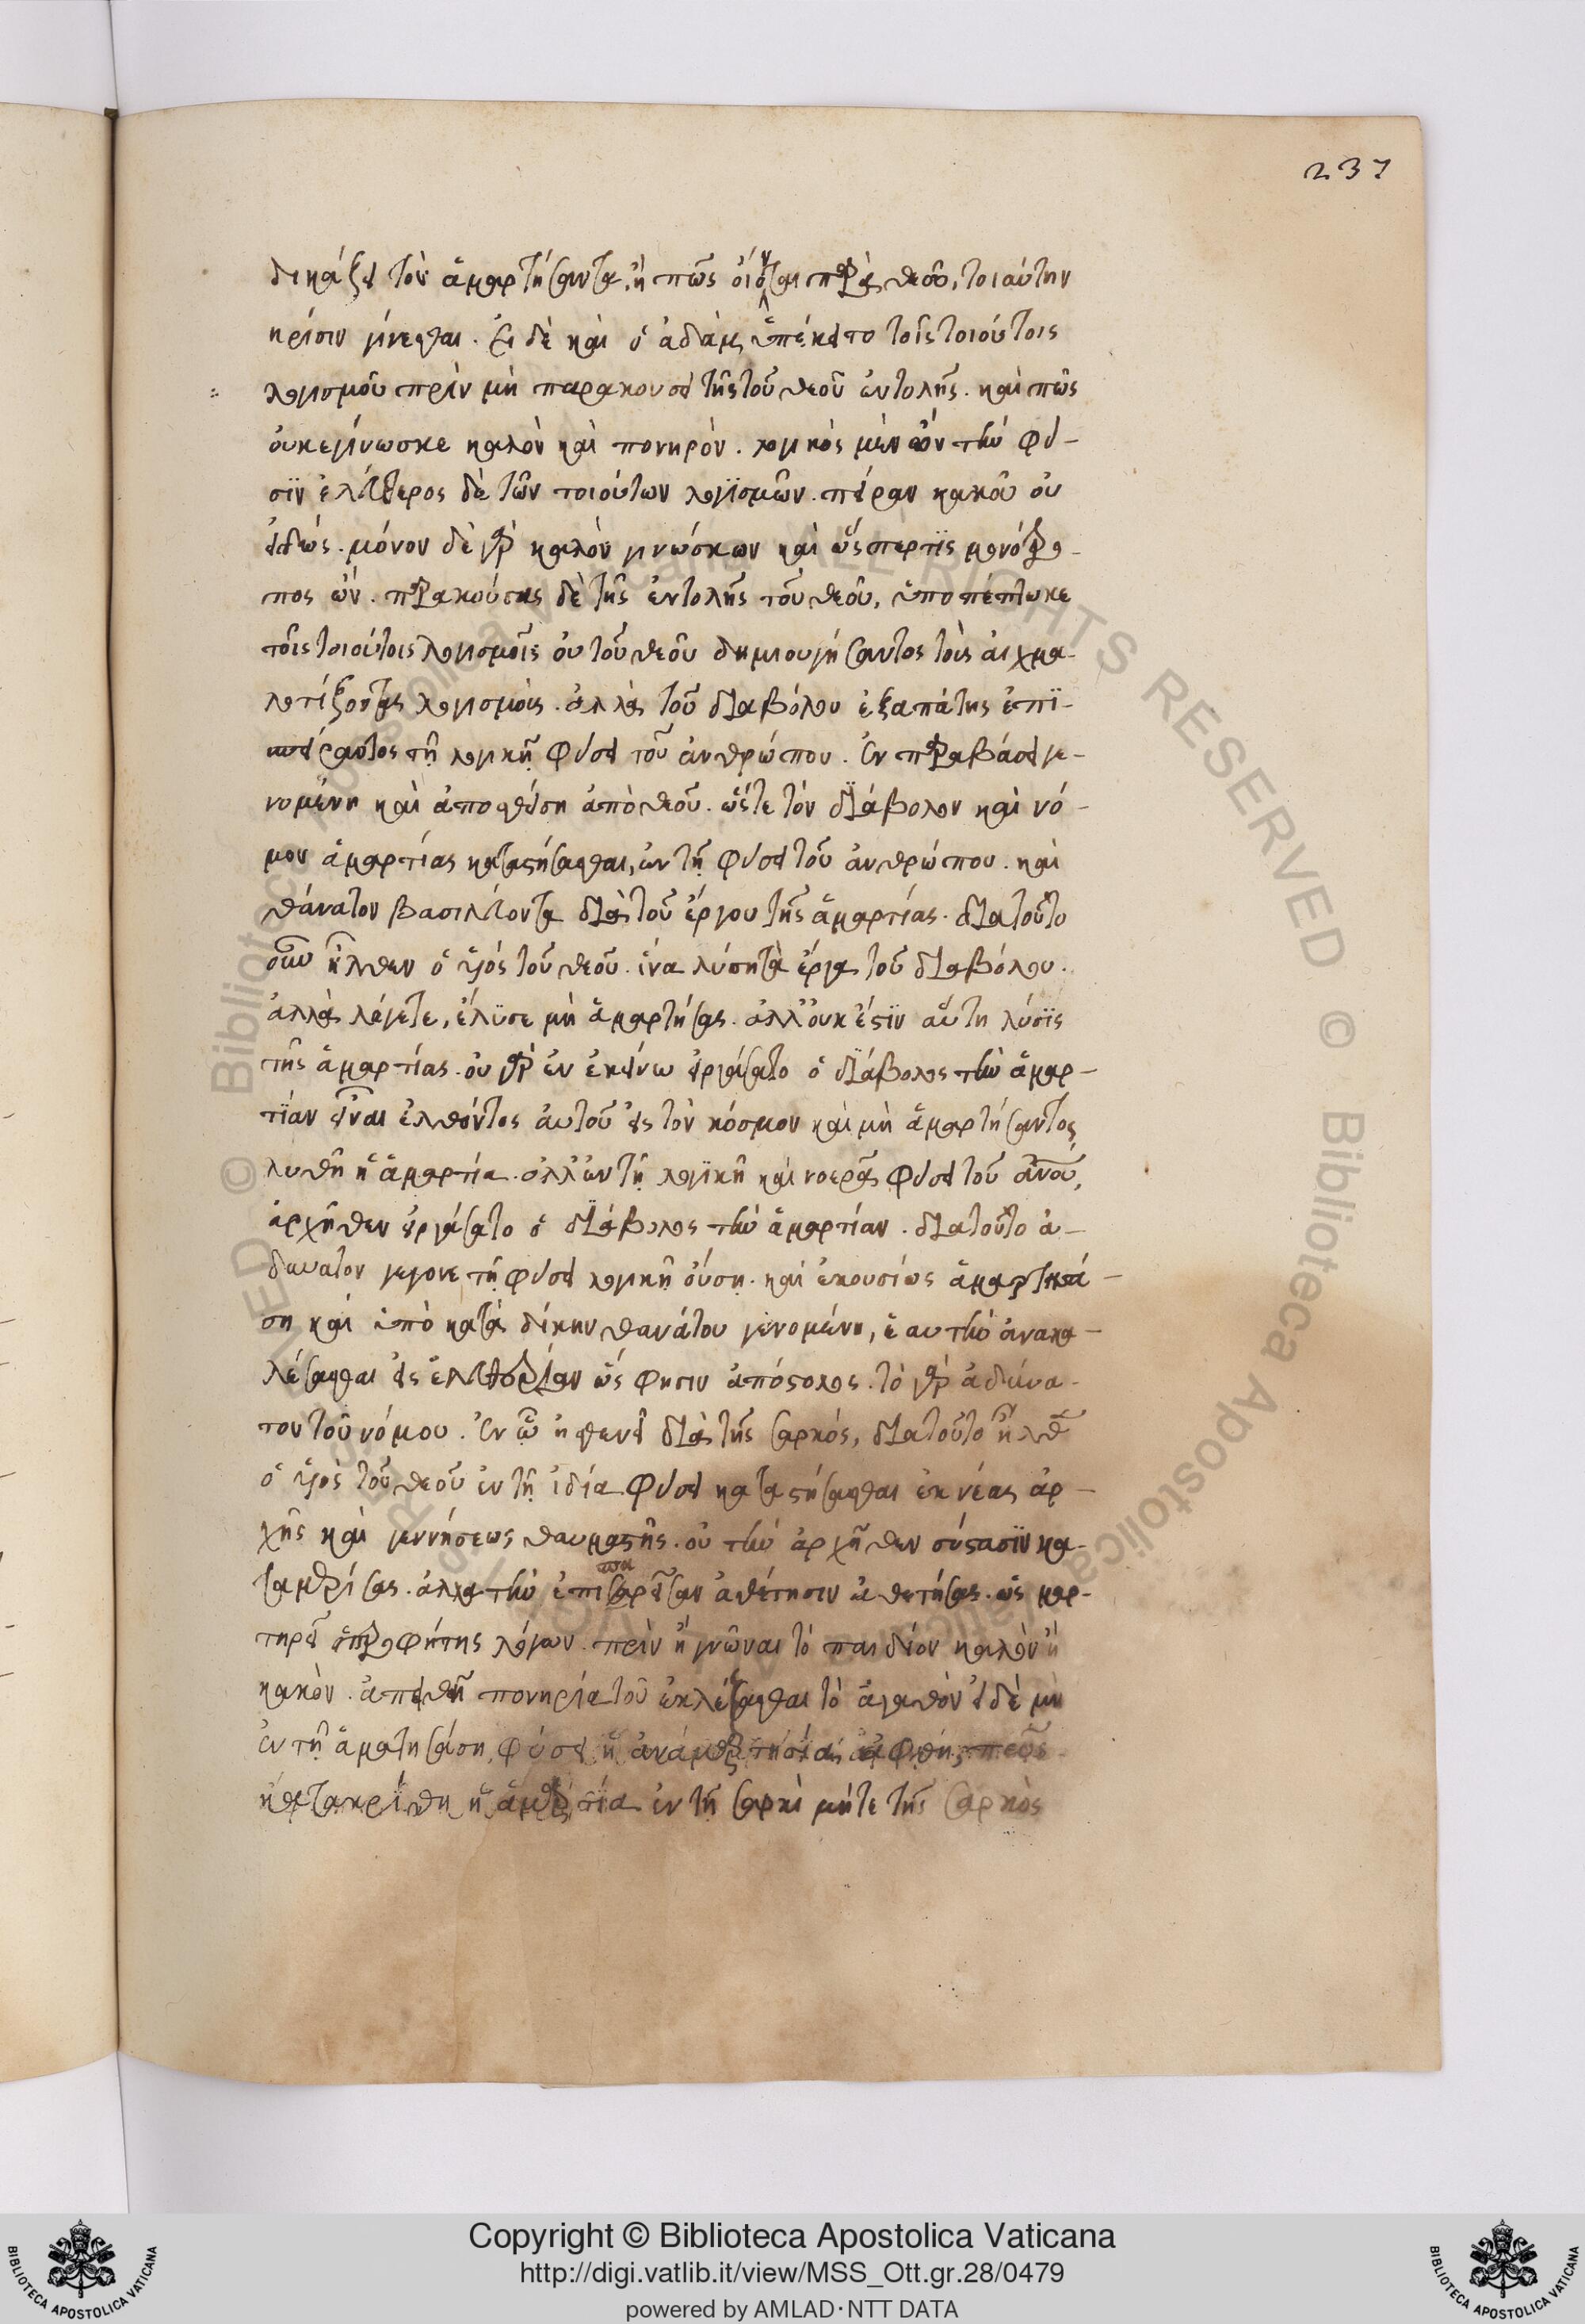 237
δικάζει τὸν ἁμαρτήσαντα, ἢ πῶς οἴονται παρὰ θεοῦ, τοιαύτην
κρίσιν γίνεσθαι. Εἰ δὲ καὶ ὁ ἀδὰμ ὑπέκειτο τοῖς τοιούτοις
λογισμοῦ πρὶν μὴ παρακούσει τῆς τοῦ θεοῦ ἐντολῆς. καὶ πῶς
οὐκ ἐγίνωσκε καλὸν καὶ πονηρόν. λογικὸς μὲν ὢν τὴν φύ-
σϊν ἐλεύθερος δὲ τῶν τοιούτων λογϊσμῶν. πεῖραν κακοῦ οὐ
εἰδώς. μόνον δὲ γὰρ καλὸν γινώσκων καὶ ὥσπερ τϊς μονότρο-
πος ὤν. παρακούσας δὲ τῆς ἐντολῆς τοῦ θεοῦ, ὑποπέπτωκε
τοῖς τοιούτοις λογισμοῖς οὐ τοῦ θεοῦ δημιουγήσαντος τοὺς αἰχμα-
λοτίζοντας λογισμοὺς. ἀλλὰ τοῦ διαβόλου ἐξαπάτης ἐπϊ-
σπείραντος τῇ λογικῇ φύσει τοῦ ἀνθρώπου. Ἐν παραβάσει γε-
νομένη καὶ ἀποσθείση ἀπὸ θεοῦ. ὥστε τὸν διάβολον καὶ νό-
μον ἁμαρτίας καταστήσασθαι, ἐν τῇ φύσει τοῦ ἀνθρώπου. καὶ
θάνατον βασιλεύοντα διὰ τοῦ ἔργου τῆς ἁμαρτίας. διατοῦτο
οὖν ἦλθεν ὁ υἱὸς τοῦ θεοῦ. ἵνα λύση τὰ ἔργα τοῦ διαβόλου.
ἀλλὰ λέγετε, ἔλϋσε μὴ ἁμαρτήσας. ἀλλ' οὐκ ἔστϊν αὕτη λύσϊς
τῆς ἁμαρτίας. οὐ γὰρ ἐν ἐκείνω εἰργάσατο ὁ διάβολος τὴν ἁμαρ-
τϊάν εἶναι ἐλθόντος αὐτοῦ εἰς τὸν κόσμον καὶ μὴ ἁμαρτήσαντος
λυθῆ ἡ ἁμαρτία. ἀλλ' ἐν τῇ λογϊκῇ καὶ νοερᾷ φύσει τοῦ ἀνοῦ,
ἀρχῆθεν εἰργάσατο ὁ διάβολος τὴν ἁμαρτίαν. διατοῦτο ἀ-
δυνατον γεγονε τῇ φύσει λογικῇ οὔσῃ. καὶ ἑκουσίως ἁμαρτησά-
ση καὶ ὑπὸ κατὰ δίκην θανάτου γενομένη, ἑαυτὴν ἀνακα-
λέσασθαι εἰς ἐλευθερίαν ὥς φησιν ἀπόστολος. τὸ γὰρ ἀδύνα-
τον τοῦ νόμου. Ἐν ᾧ ἠσθενεῖ διὰ τῆς σαρκός, διατοῦτο ἦλθε
ὁ υἱὸς τοῦ θεοῦ ἐν τῇ ἰδία φύσει καταστήσασθαι ἐκ νέας ἀρ-
χῆς καὶ γεννήσεως θαυμαστῆς. οὐ τὴν ἀρχῆθεν σύστασϊν κα-
ταμερίσας. ἀλλα τὴν ἐπισπαρεῖσαν ἀθέτησιν ἀθετήσας. ὡς μαρ-
τηρεῖ προφήτης λέγων. πρὶν ἢ γνῶναι τὸ παιδίον καλὸν ἢ
κακὸν. ἀπειθῆ πονηρία τοῦ ἐκλέξασθαι τὸ ἀγαθὸν εἰ δὲ μὴ
ἐν τῇ ἁματησάση φύσει ἡ ἀναμαρτησία ὤφθη, πῶς
κατακρίθη ἡ ἁμαρτϊα ἐν τῇ σαρκὶ μήτε τῆς σαρκὸς
Copyright © Biblioteca Apostolica Vaticana
http://digi.vatlib.it/view/MSS_Ott.gr.28/0479
powered by AMLAD·NTT DATA